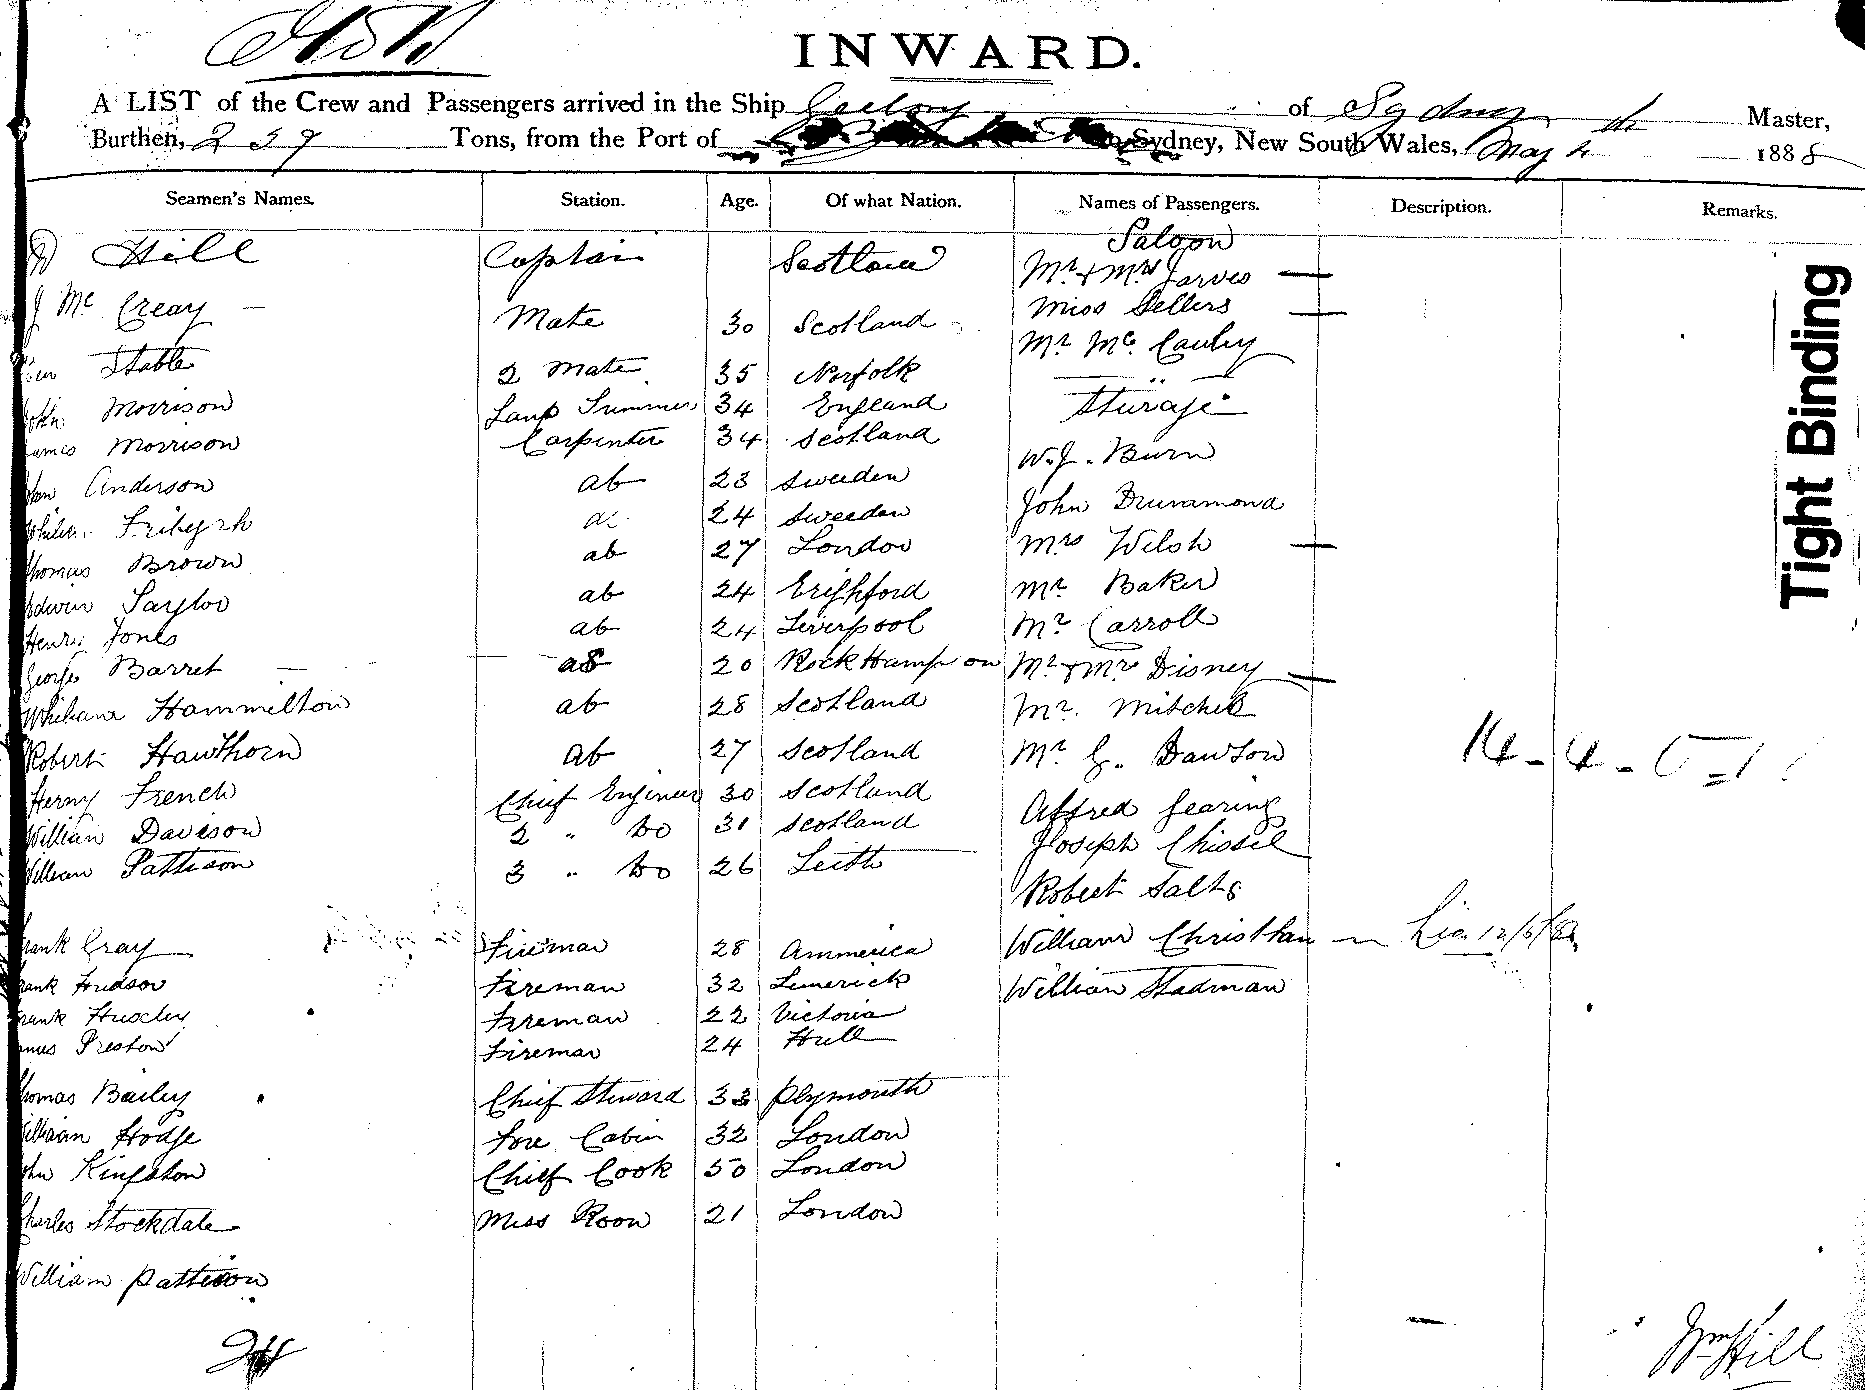 INWARD.
A LIST of the Crew and Passengers arrived in the Ship Geelong of Sydney Master,
Burthen, 239 Tons, from the Port of to Sydney, New South Wales, May 4 1888
Seamen's Names. Station. Age. Of what Nation. Names of Passengers. Description. Remarks.
Saloon
Hill Captain Scotland Mr & Mrs Jarves
J Mc Creay Mate 30 Scotland Miss Sellers
Mr Mc. Cauley
Stable 2 Mate 35 Norfolk
John Morrison Lamp Trimmer 34 England Sturage
James Morrison Carpenter 34 Scotland
W. J. Burn
John Anderson ab 23 Sweeden
John Drummond
ab 24 Sweeden
Thomas Brown ab 27 London Mrs Welsh
Edwin Taylor ab 24 Mr Baker
Henry Jones ab 24 Liverpool Mr Carroll
George Barret ab 20 Rockhampon Mr & Mrs Disney
Whiliam Hammilton ab 28 Scotland Mr. Mitchel
Robert Hawthorn ab 27 Scotland Mr G. Dawson
14-4-
Herny French Chief Engineer 30 Scotland Alfred Gearing
William Davison 2 " Do 31 Scotland Joseph Chissel
William Pattison 3 " Do 26 Leith
Robert Salts
Frank Gray Fireman 28 Ammerica William Christhan
Frank Hudson Fireman 32 Limerick William Stadman
Frank Huxley Fireman 22 Victoria
James Preston Fireman 24 Hull
Thomas Bailey Chief Steward 33 Plymouth
William Hodge Fore Cabin 32 London
John Kingston Chief Cook 50 London
Charles Stockdale Mess Room 21 London
William Pattison
24
Wm Hill
Tight Binding